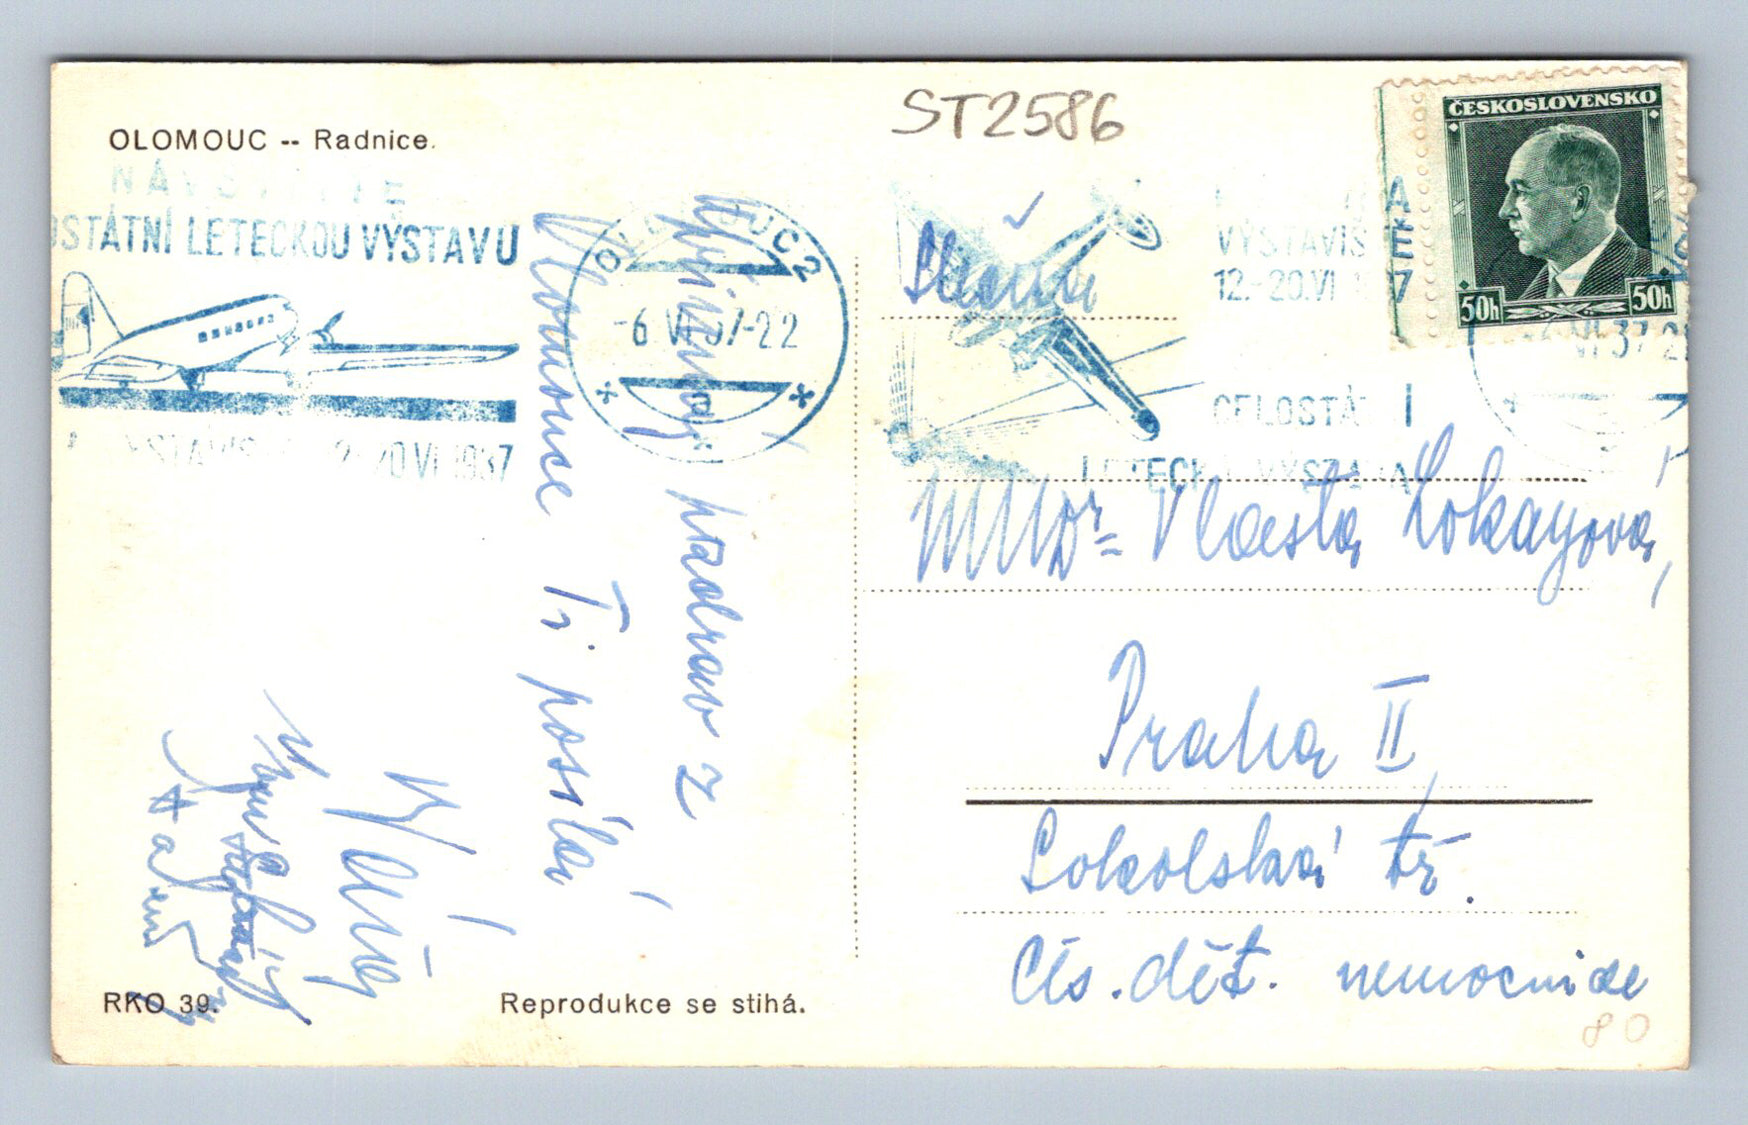 ST2586
OLOMOUC -- Radnice.
NÁVŠTIVTE
OSTÁTNÍ LETECKOU VÝSTAVU
12.-20.VI.1937
OLOMOUC 2
-6.VI.37-22
VÝSTAVIŠ
12.-20.VI 1
CELOSTÁ I
LETECKÁ VÝSTAVA
ČESKOSLOVENSKO
50h 50h
-6.VI.37-2
pozdrav z
Olomouce
Ti posílá
Slečna
MUDr= Vlasta Lokayová,
Praha II,
Sokolská tř.
Čís. dět. nemocnice
80
RKO 39.
Reprodukce se stihá.